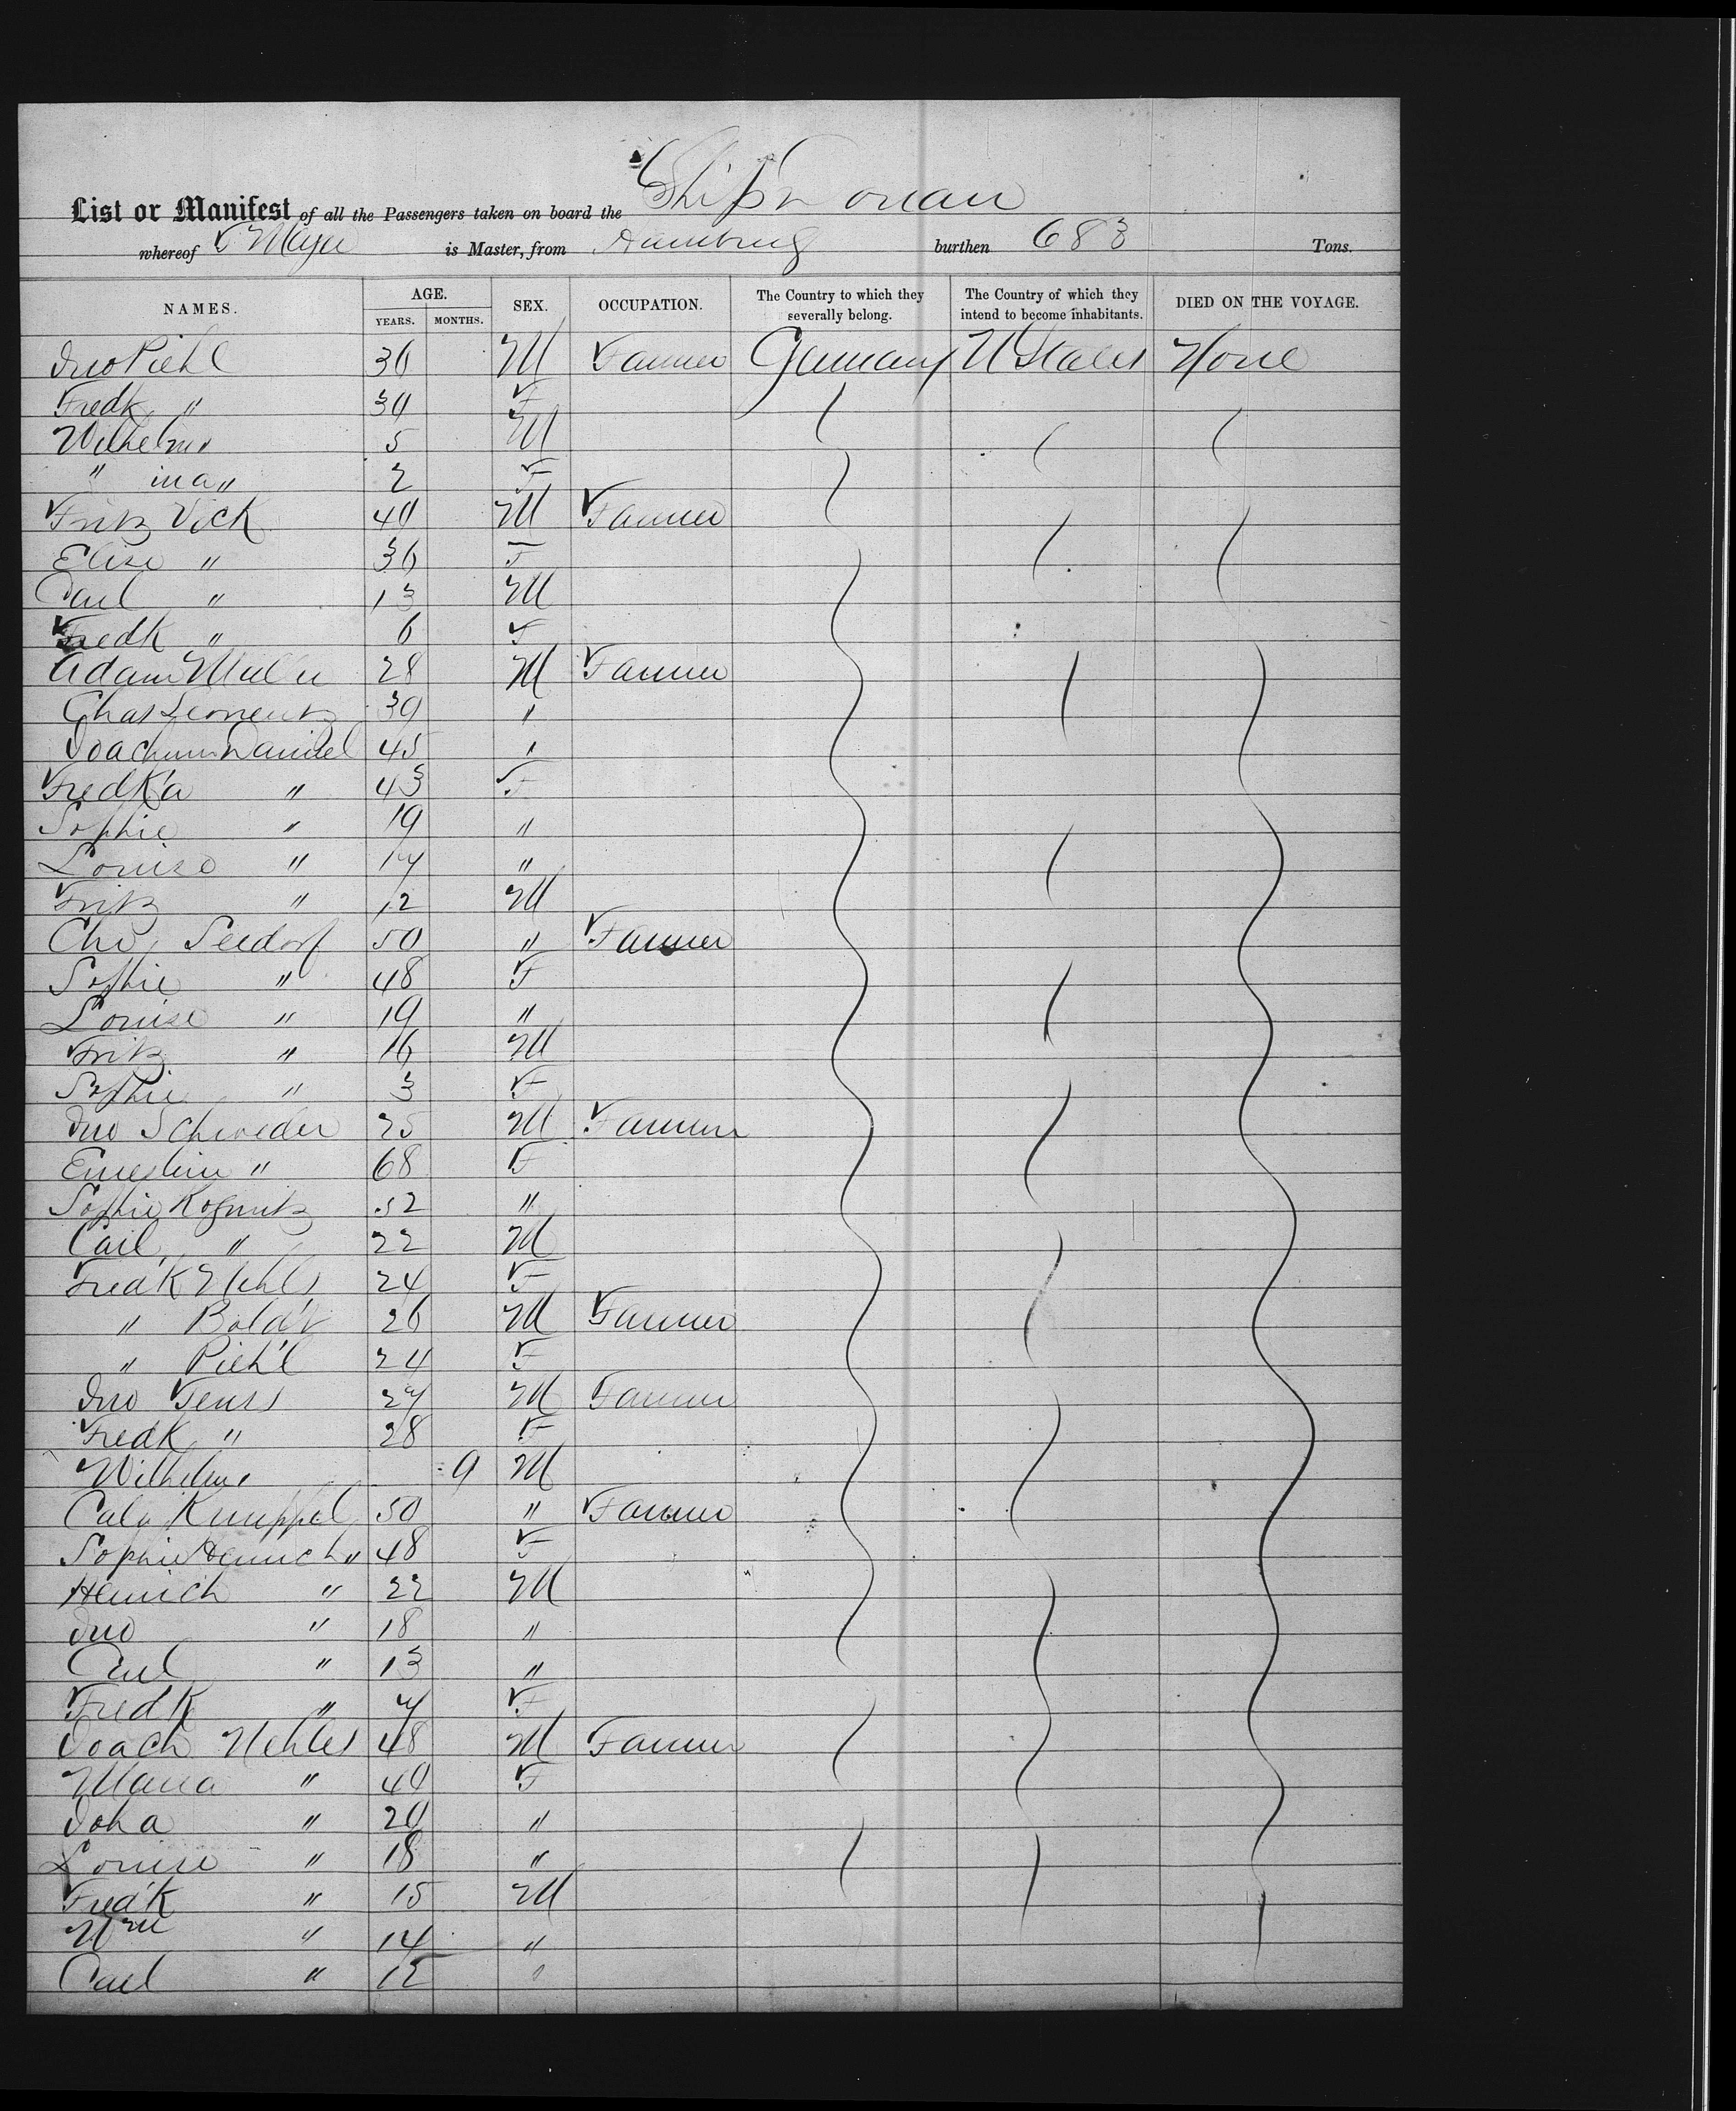 List or Manifest of all the Passengers taken on board the Ship
whereof Meyer is Master, from Hamburg burthen 683 Tons.
NAMES. AGE. YEARS. MONTHS. SEX. OCCUPATION. The Country to which they severally belong. The Country of which they intend to become inhabitants. DIED ON THE VOYAGE.
Jno Piehl 36 M Farmer Germany U States None
Fredk " 30 F
Wilhelm " 5 M
" ina " 2 F
Fritz Vick 40 M Farmer
Elise " 36 F
Carl " 13 M
Fredk " 6 F
Adam Muller 28 M Farmer
Chas 39 "
Joachim 45 "
Fredk'a " 43 F
Sophie " 19 "
Louise " 17 "
Fritz " 12 M
Chr Seedorf 50 " Farmer
Sophie " 48 F
Louise " 19 "
Fritz " 16 M
Sophie " 3 F
Jno Schroeder 25 M Farmer
Ernestin " 68 F
Sophie 52 "
Carl " 22 M
Fred'k Nehls 24 F
" Boldt 26 M Farmer
" Piehl 24 F
Jno 27 M Farmer
Fredk " 28 F
Wilhelm 9 M
Knuppel 50 " Farmer
Sophie Heinrich " 48 F
Heinrich " 22 M
Jno " 18 "
Carl " 13 "
Fredk " 7 F
Joach Nehles 48 M Farmer
Maria " 40 F
Joha " 20 "
Louise " 18 "
Fred'k " 15 M
Wm " 14 "
Carl " 12 "